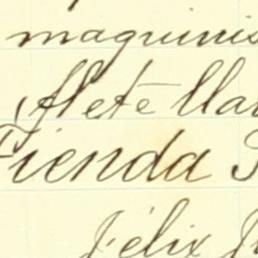 maquinis
Flete lla
Tienda
Félix